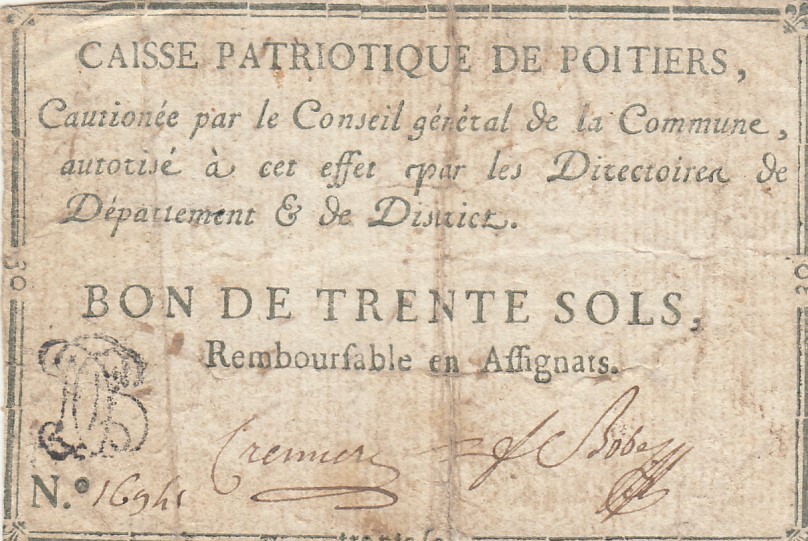 CAISSE PATRIOTIQUE DE POITIERS,
Cautionée par le Conseil général de la Commune,
autorisé à cet effet par les Directoires de
Département & de District.
30
30
BON DE TRENTE SOLS,
Rembourſable en Aſſignats.
N.º